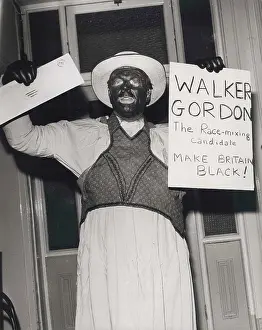 WALKER
GORDON
The Race-mixing
Candidate
MAKE BRITAIN
BLACK!